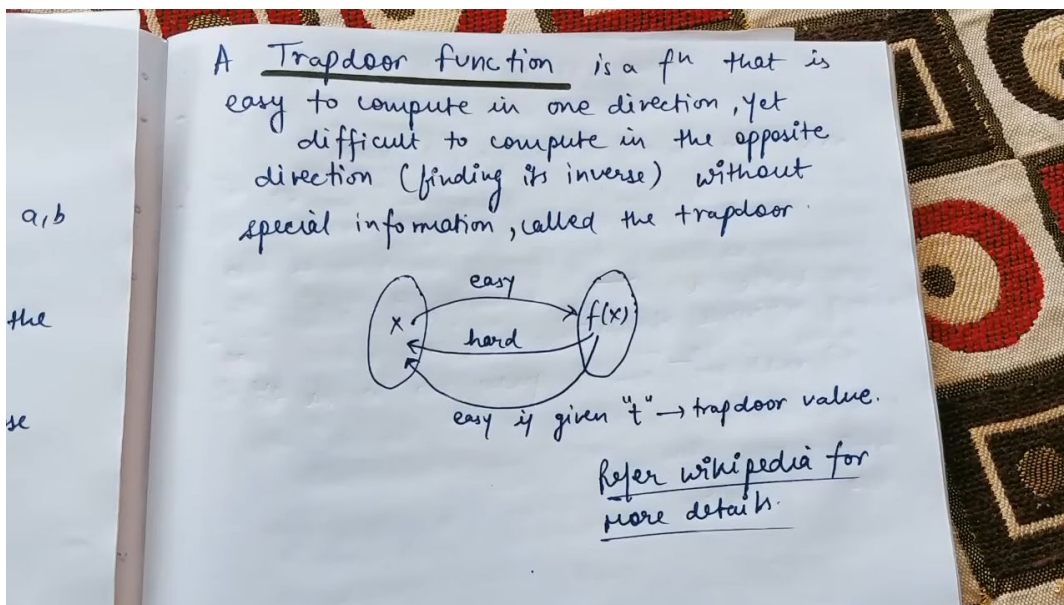 A Trapdoor function is a fn that is
easy to compute in one direction, yet
difficult to compute in the opposite
direction (finding its inverse) without
special information, called the trapdoor.
a,b
the
se
easy
x
f(x)
hard
easy if given "t" → trapdoor value.
Refer wikipedia for
more details.